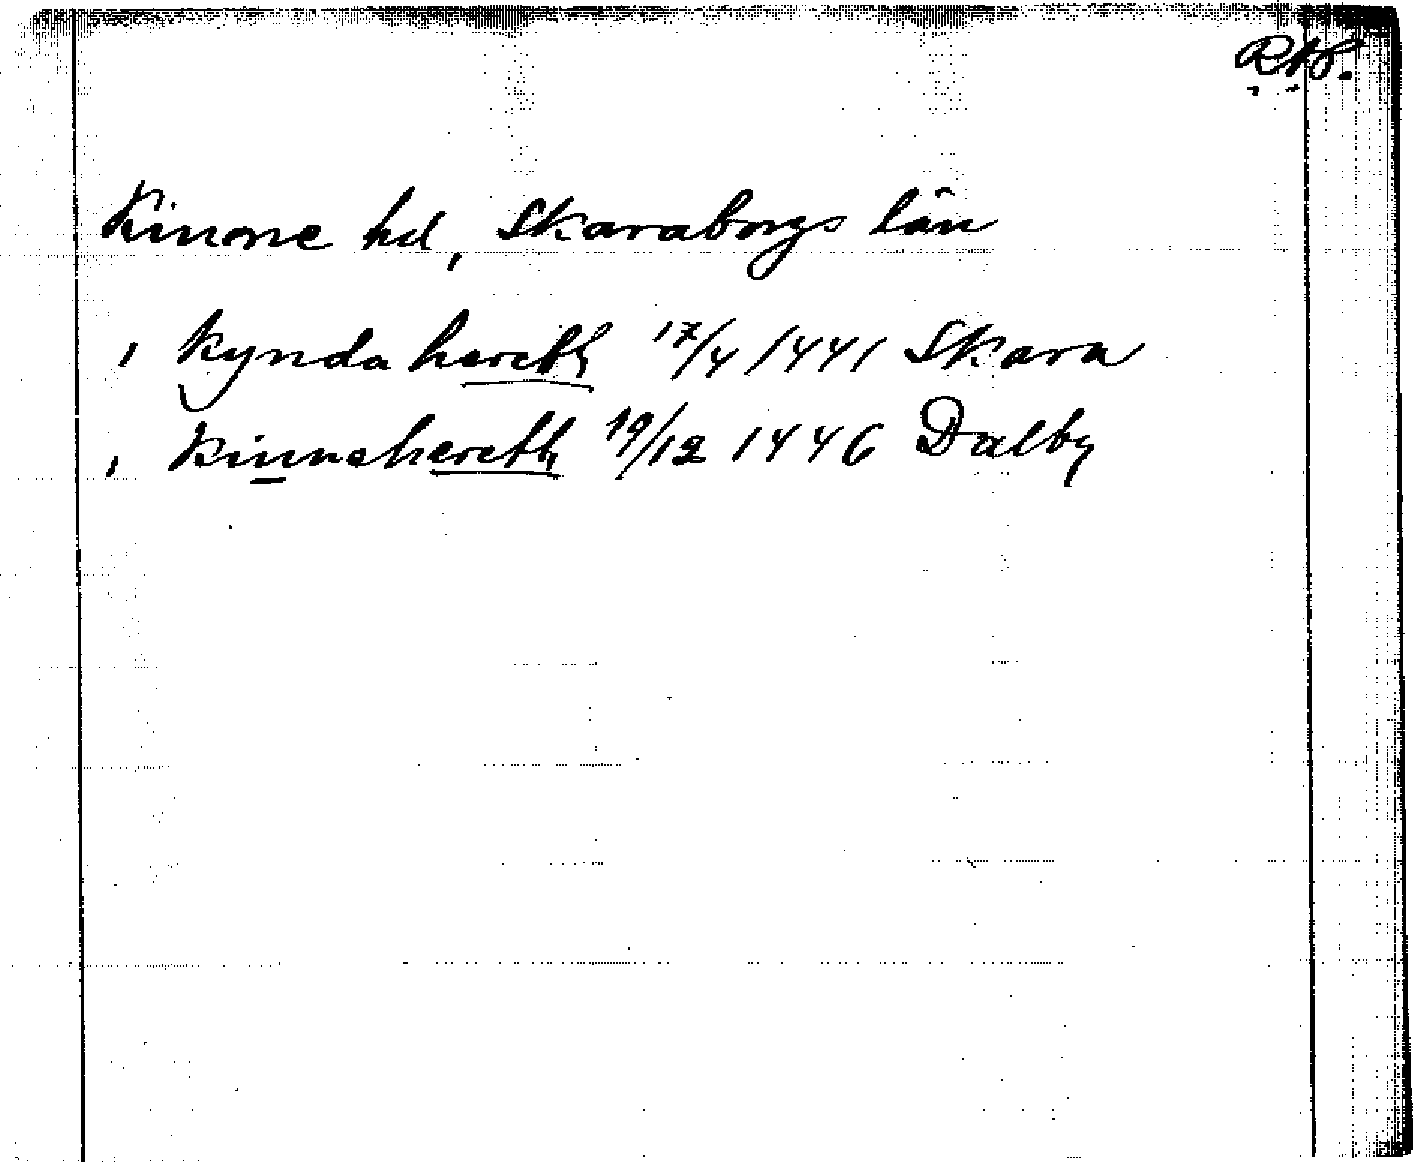 RAP.
Kinne hd, Skaraborgs län
, kynda hæreth 17/4 1441 Skara
, Kinnehereth 19/12 1446 Dalby